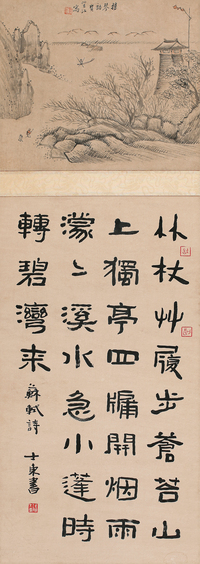 竹杖艸履步蒼苔山
上獨亭四牖開烟雨
濛〻溪水急小蓬時
轉碧灣來
蘇軾詩
士東書